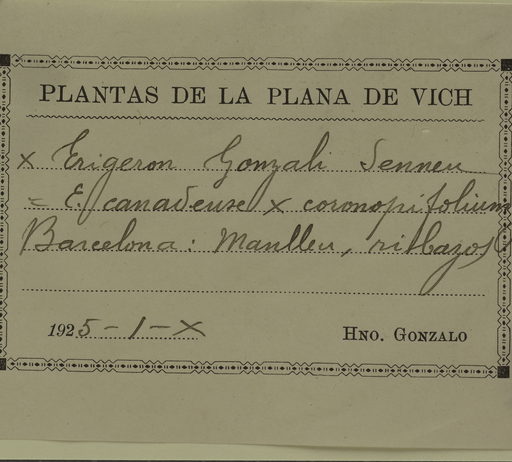 PLANTAS DE LA PLANA DE VICH
x Erigeron Gonzali Sennen
= E. canadense x coronopifolium
Barcelona: Manlleu, ribazos
1925-1-X
HNO. GONZALO